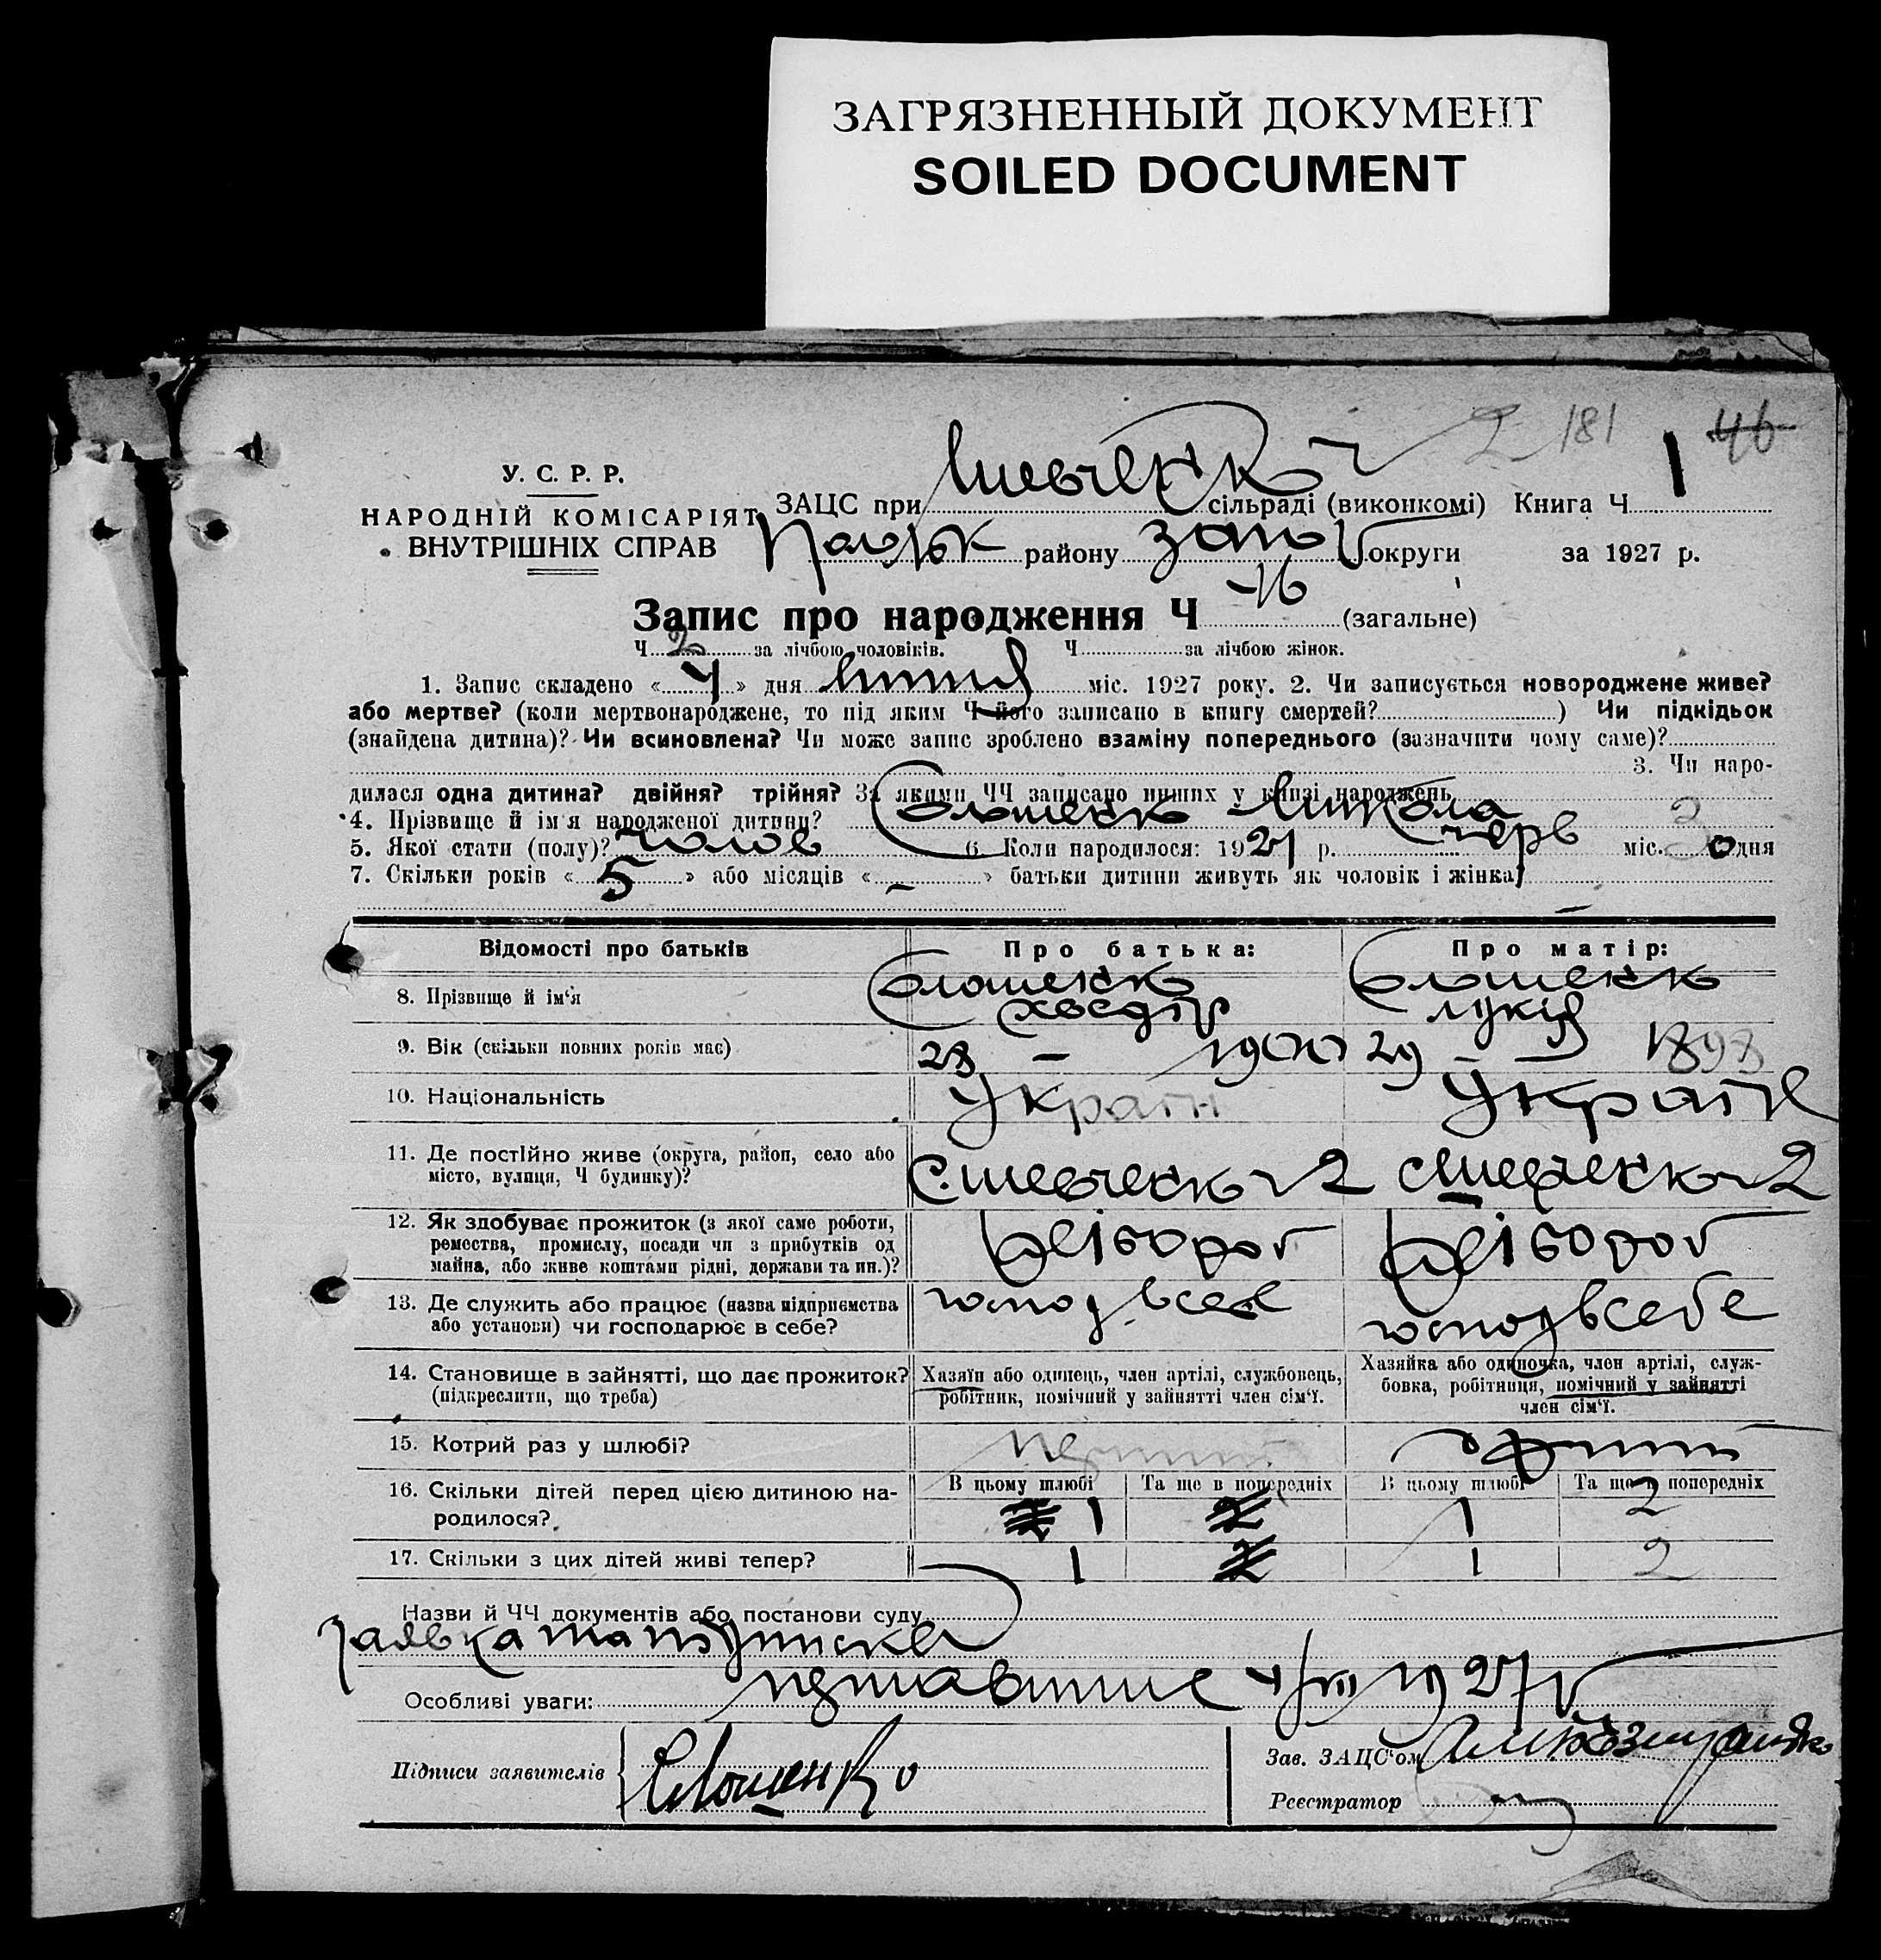 ЗАГРЯЗНЕННЫЙ ДОКУМЕНТ
SOILED DOCUMENT
2 181 46
У. С. Р. Р.
НАРОДНІЙ КОМІСАРІЯТ
ВНУТРІШНІХ СПРАВ
ЗАЦС при сільраді (виконкомі) Книга Ч 1
району округи за 1927 р.
Запис про народження Ч (загальне)
Ч 2 за лічбою чоловіків. Ч за лічбою жінок.
1. Запис складено « 4 » дня міс. 1927 року. 2. Чи записується новороджене живе?
або мертве? (коли мертвонароджене, то під яким Ч його записано в книгу смертей? ) Чи підкідьок
(знайдена дитина)? Чи всиновлена? Чи може запис зроблено взаміну попереднього (зазначити чому саме)?
3. Чи наро-
дилася одна дитина? двійня? трійня? За якими ЧЧ записано инших у книзі народжень
4. Прізвище й ім'я народженої дитини? Микола
5. Якої стати (полу)? чолов 6. Коли народилося: 1927 р. черв міс. 30 дня
7. Скільки років « 5 » або місяців « – » батьки дитини живуть як чоловік і жінка?
Відомості про батьків
Про батька:
Про матір:
8. Прізвище й ім'я
9. Вік (скільки повних років має)
28 – 1900
29 – 1898
10. Національність
Україн
Україн
11. Де постійно живе (округа, район, село або
місто, вулиця, Ч будинку)?
12. Як здобуває прожиток (з якої саме роботи,
ремества, промислу, посади чи з прибутків од
майна, або живе коштами рідні, держави та ин.)?
хлібороб
хлібороб
13. Де служить або працює (назва підприємства
або установи) чи господарює в себе?
господ. в себе
господ в себе
14. Становище в зайнятті, що дає прожиток?
(підкреслити, що треба)
Хазяїн або одинець, член артілі, службовець,
робітник, помічний у зайнятті член сім'ї.
Хазяйка або одиночка, член артілі, служ-
бовка, робітниця, помічний у зайнятті
член сім'ї.
15. Котрий раз у шлюбі?
перший
другий
16. Скільки дітей перед цією дитиною на-
родилося?
В цьому шлюбі Та ще в попередніх
В цьому шлюбі Та ще в попередніх
1
1 2
17. Скільки з цих дітей живі тепер?
1
1 2
Назви й ЧЧ документів або постанови суду
заявка та підписка
Особливі уваги: 4/VII 1927 р
Підписи заявителів
Зав. ЗАЦС'ом
Реєстратор